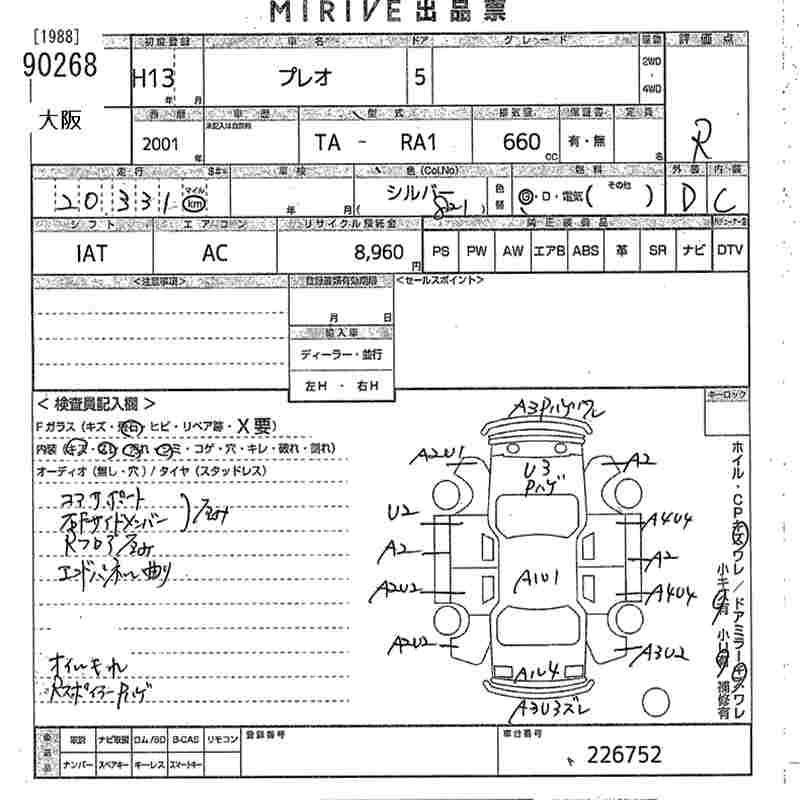 MIRIVE出品票
[1988]
90268
大阪
初度登録 車名 ドア グレード 評価点
H13 年 月 プレオ 5 2WD ・ 4WD R
西暦 車歴 型式 排気量 保証書 定員
2001 年 未記入は自家用 TA - RA1 660 CC 有・無 名
走行 車検 色(Col.No) 燃料 外装 内装
20,331 マイル km 年 月 シルバー ( 821 ) 色替 G・D・電気( その他 ) D C
シフト エアコン リサイクル預託金 純正装備品
IAT AC 8,960 円 PS PW AW エアB ABS 革 SR ナビ DTV
<注意事項> 登録書類有効期限 <セールスポイント>
月 日
輸入車
ディーラー・並行
左H - 右H
< 検査員記入欄 > キーロック
Fガラス(キズ・飛石・ヒビ・リペア跡・X要)
内装(キズ・汚れ・シミ・コゲ・穴・キレ・破れ・割れ)
オーディオ(無し・穴)/タイヤ(スタッドレス)
コアサポート
右Fサイドメンバー
Rフロア歪み
エンドパネル曲り
オイルモれ
Rスポイラー Pハゲ
A3PハゲワレU3
Pハゲ
A2U1 A2
U2 A4U4
A2 A2
A2U2 A1U1 A4U4
A2U2 A3U2
A1U4
A3U3ズレ
ホイル・CPキズワレ/ドアミラーキズワレ
小キズ有 小凹有 補修有
取説 ナビ取説 ロム/SD B-CAS リモコン 登録番号 車台番号
ナンバー スペアキー キーレス スマートキー 226752